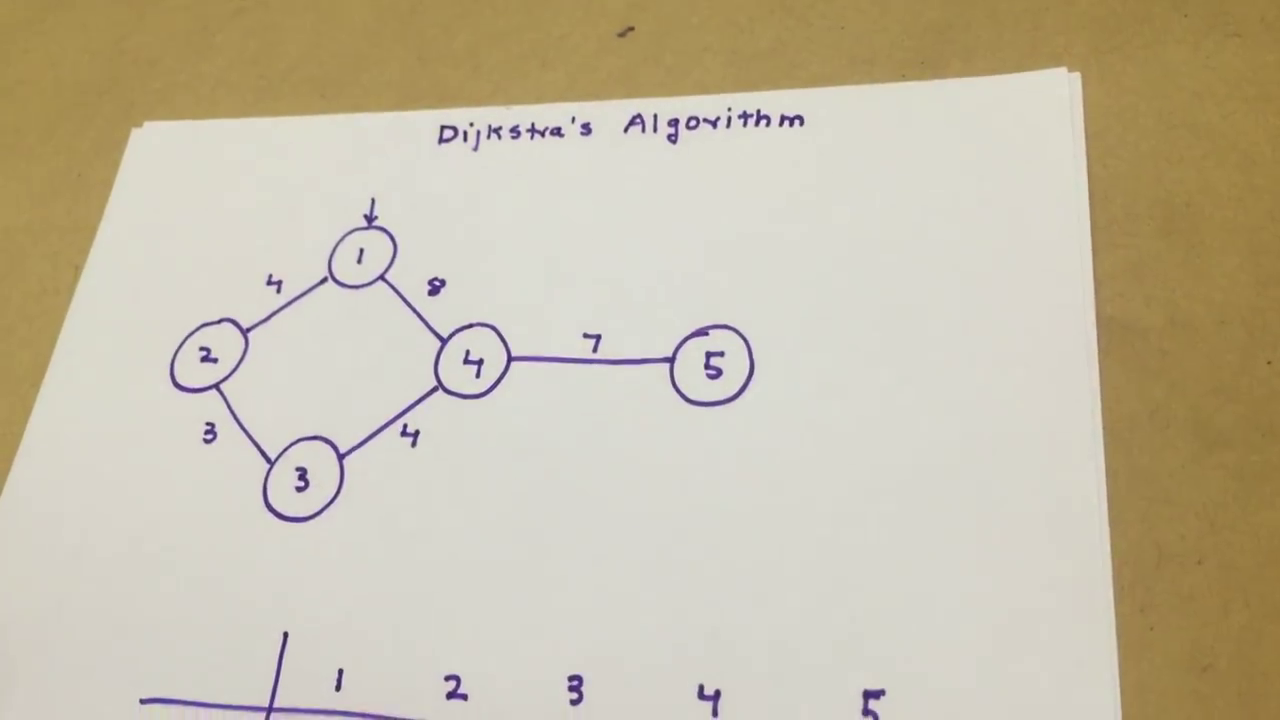 Dijkstra's Algorithm
1
4 8
2 4 7 5
3 4
3
1 2 3 4 5